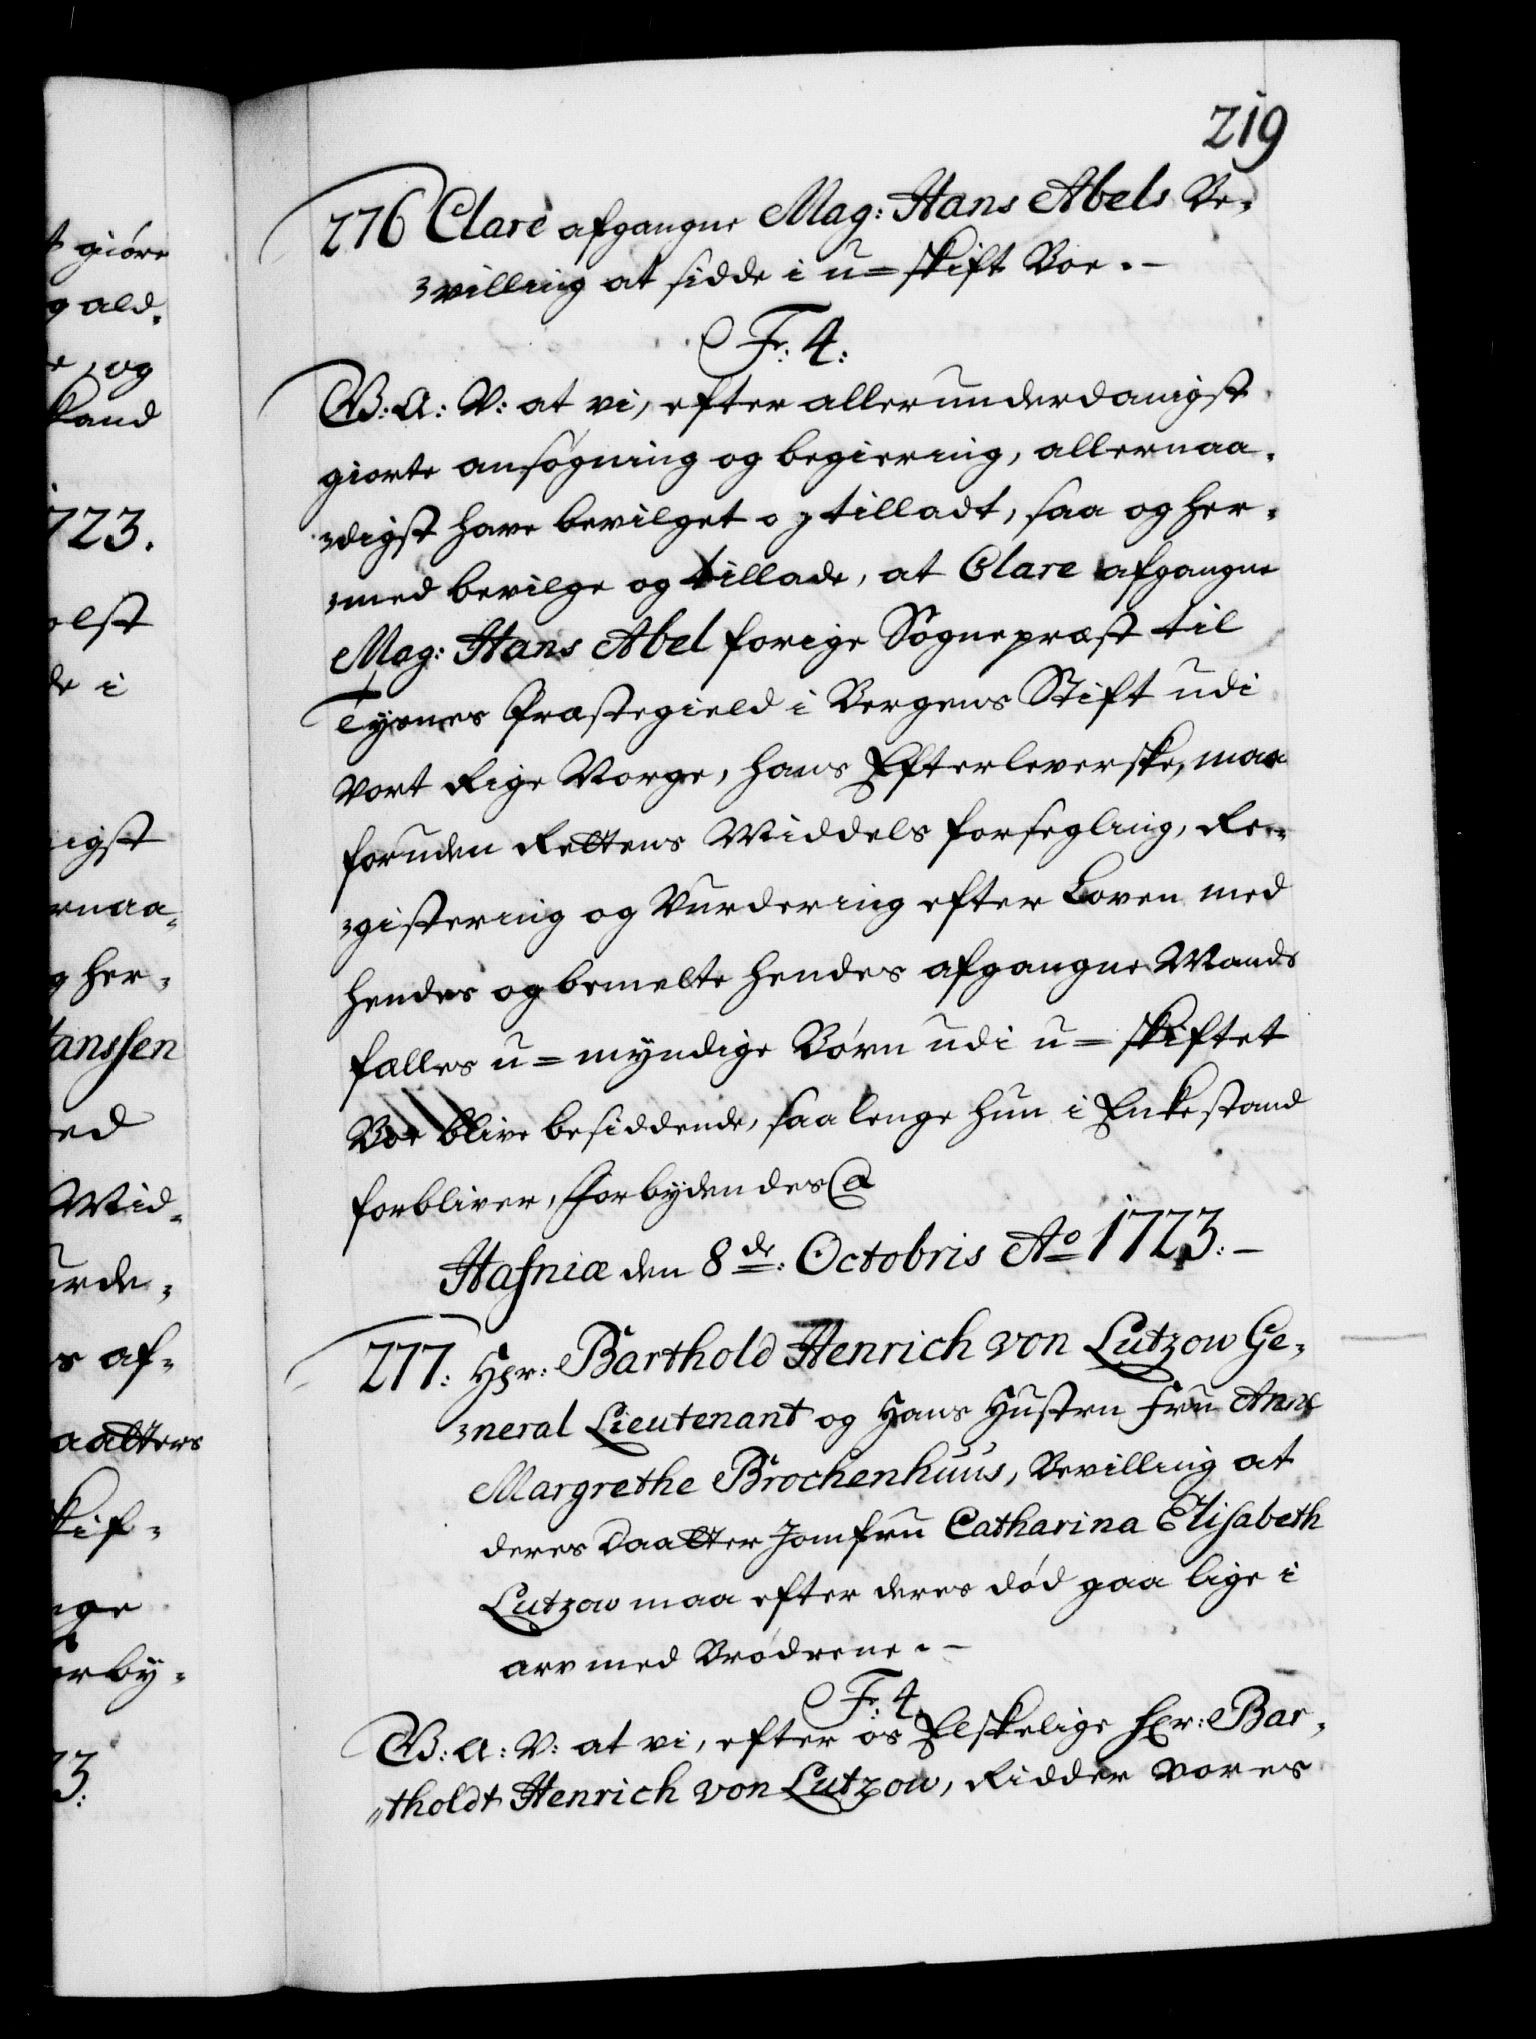 219
276 Clare afgangne Mag: Hans Abels Be-
villing at sidde i u=skift Boe.
F: 4:
G: A: V: at vi, efter allerunderdanigst
giorte ansøgning og begiering, allernaa-
digst have bevilget og tilladt, saa og her-
med bevilge og tillade, at Clare afgangne
Mag: Hans Abel forige Sognepræst til
Tysnes Præstegield i Bergens Stift udi
Vort Rige Norge, hans Efterleverske, maa
foruden Rettens Middels forsegling, Re-
gistering og Vurdering efter Loven med
hendes og bemelte hendes afgangne Mands
fælles u=myndige Børn udi u=skiftet
Boe blive besiddende, saa lenge hun i Enkestand
forbliver, Forbydendes &
Hafniæ den 8de: Octobris Ao 1723.
277: Hr: Barthold Henrich von Lutzow Ge-
neral Lieutenant og Hans Hustru Fru Anne
Margrethe Brochenhuus, Bevilling at
deres Daatter Jomfru Catharina Elisabeth
Lutzow maa efter deres død gaa lige i
arv med Brødrene.
F: 4
G: A: V: at vi, efter os Elskelige Hr: Bar-
tholdt Henrich von Lutzow, Ridder Vores
t giøre
g ald-
e, og
kand
1723.
olst
de i
nigst
rnaa-
g her-
Hanssen
ed
Mid-
urde-
s af-
aatters
kif-
nge
orby-
3: